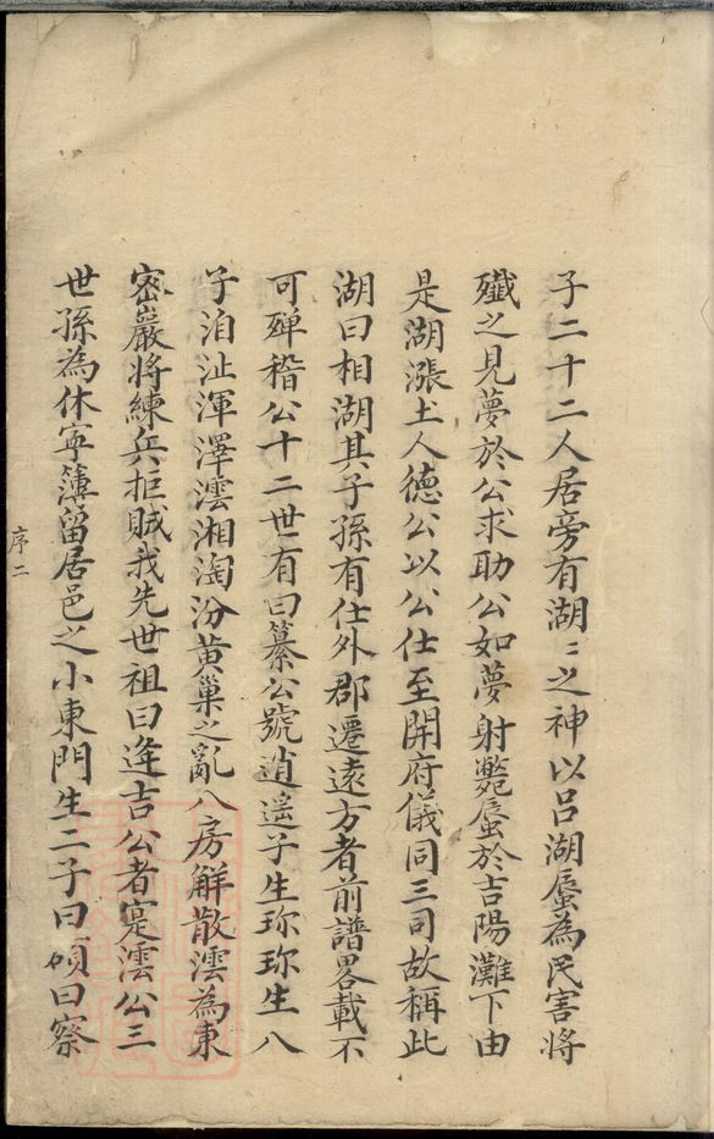 子二十二人居旁有湖〻之神以呂湖蜃為民害將
殲之見夢於公求助公如夢射斃蜃於吉陽灘下由
是湖漲土人德公以公仕至開府儀同三司故稱此
湖曰相湖其子孫有仕外郡遷遠方者前譜畧載不
可殫稽公十二世有曰纂公號逍遥子生珎珎生八
子洎沚渾澤澐湘淘汾黄巢之亂八房觧散澐為東
密巖將練兵拒賊我先世祖曰逄吉公者寔澐公三
世孫為休寜簿留居邑之小東門生二子曰碩曰察
序二